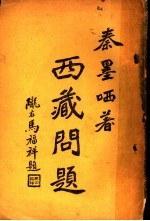 秦墨哂著
西藏問題
隴右馬福祥題